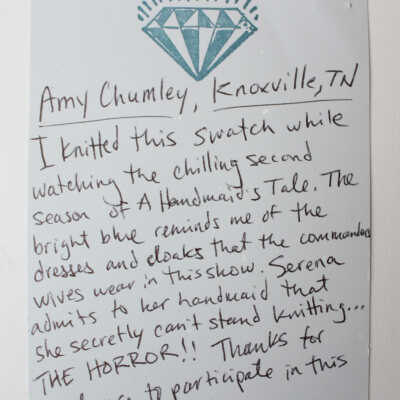 Amy Chumley, Knoxville, TN
I knitted this swatch while
watching the chilling second
season of A Handmaid's Tale. The
bright blue reminds me of the
dresses and cloaks that the commanders
wives wear in this show. Serena
admits to her handmaid that
she secretly can't stand knitting...
THE HORROR!! Thanks for
to participate in this